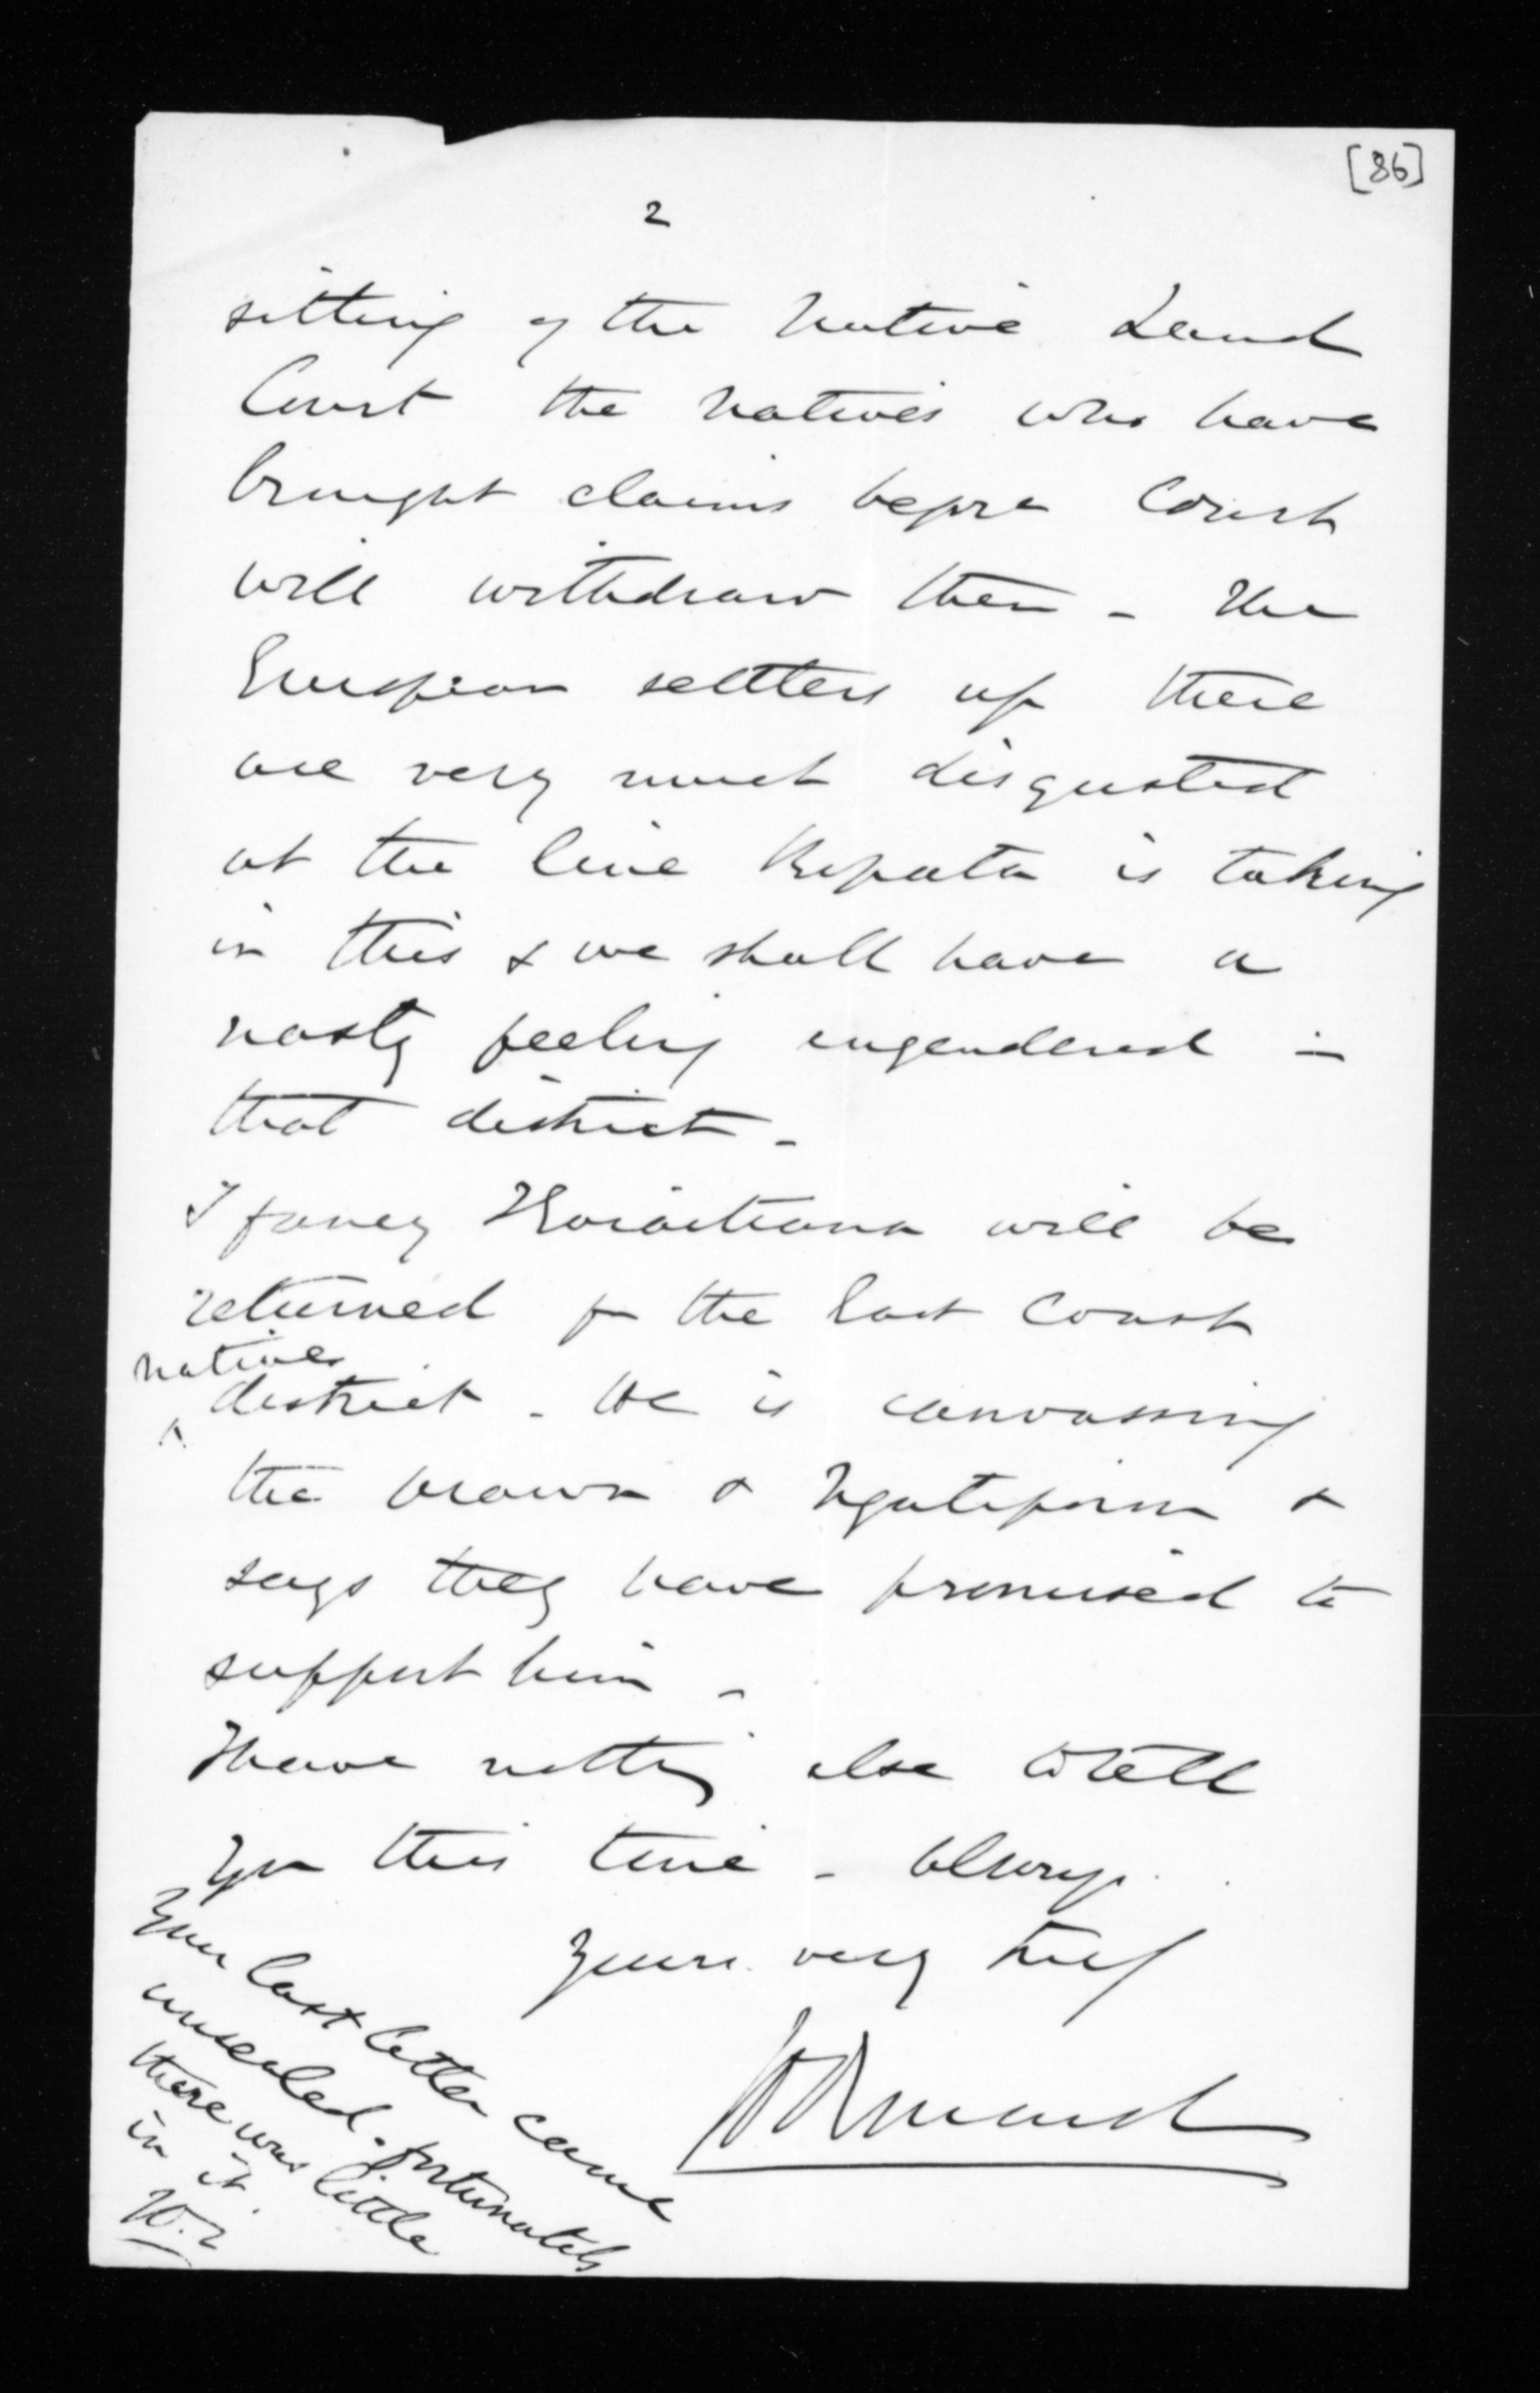 [86]
2
sitting of the Native Land
Court the Natives who have
brought claims before Court
will withdraw them - The
European settlers up there
are very much disgusted
at the line Ropata is taking
in this & we shall have a
nasty feeling engendered in
that district -
I fancy Karaitiana will be
returned for the East Coast
native
district - He is canvassing
the &
says they have promised to
support him -
I have nothing else to tell
you this time - Always
Yours very truly
Your last letter came
unsealed - fortunately
there was little
in it.